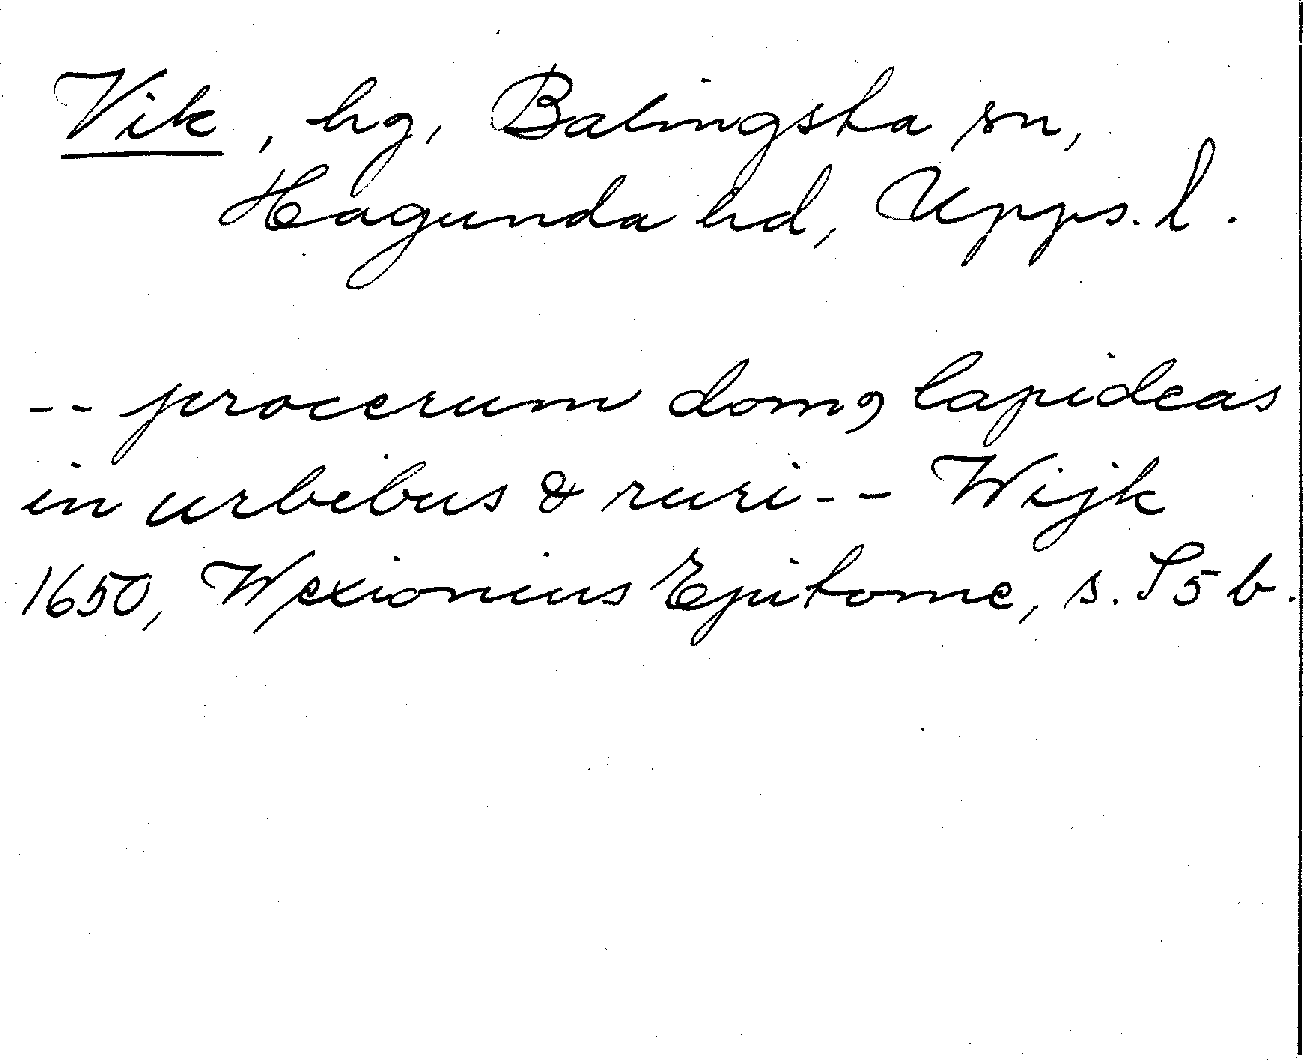 Vik, hg, Balingsta sn,
Hagunda hd, Upps. l.
-- procerum domꝰ lapideas
in urbibus & ruri -- Wijk
1650, Wexionius Epitome, s. S5 b.